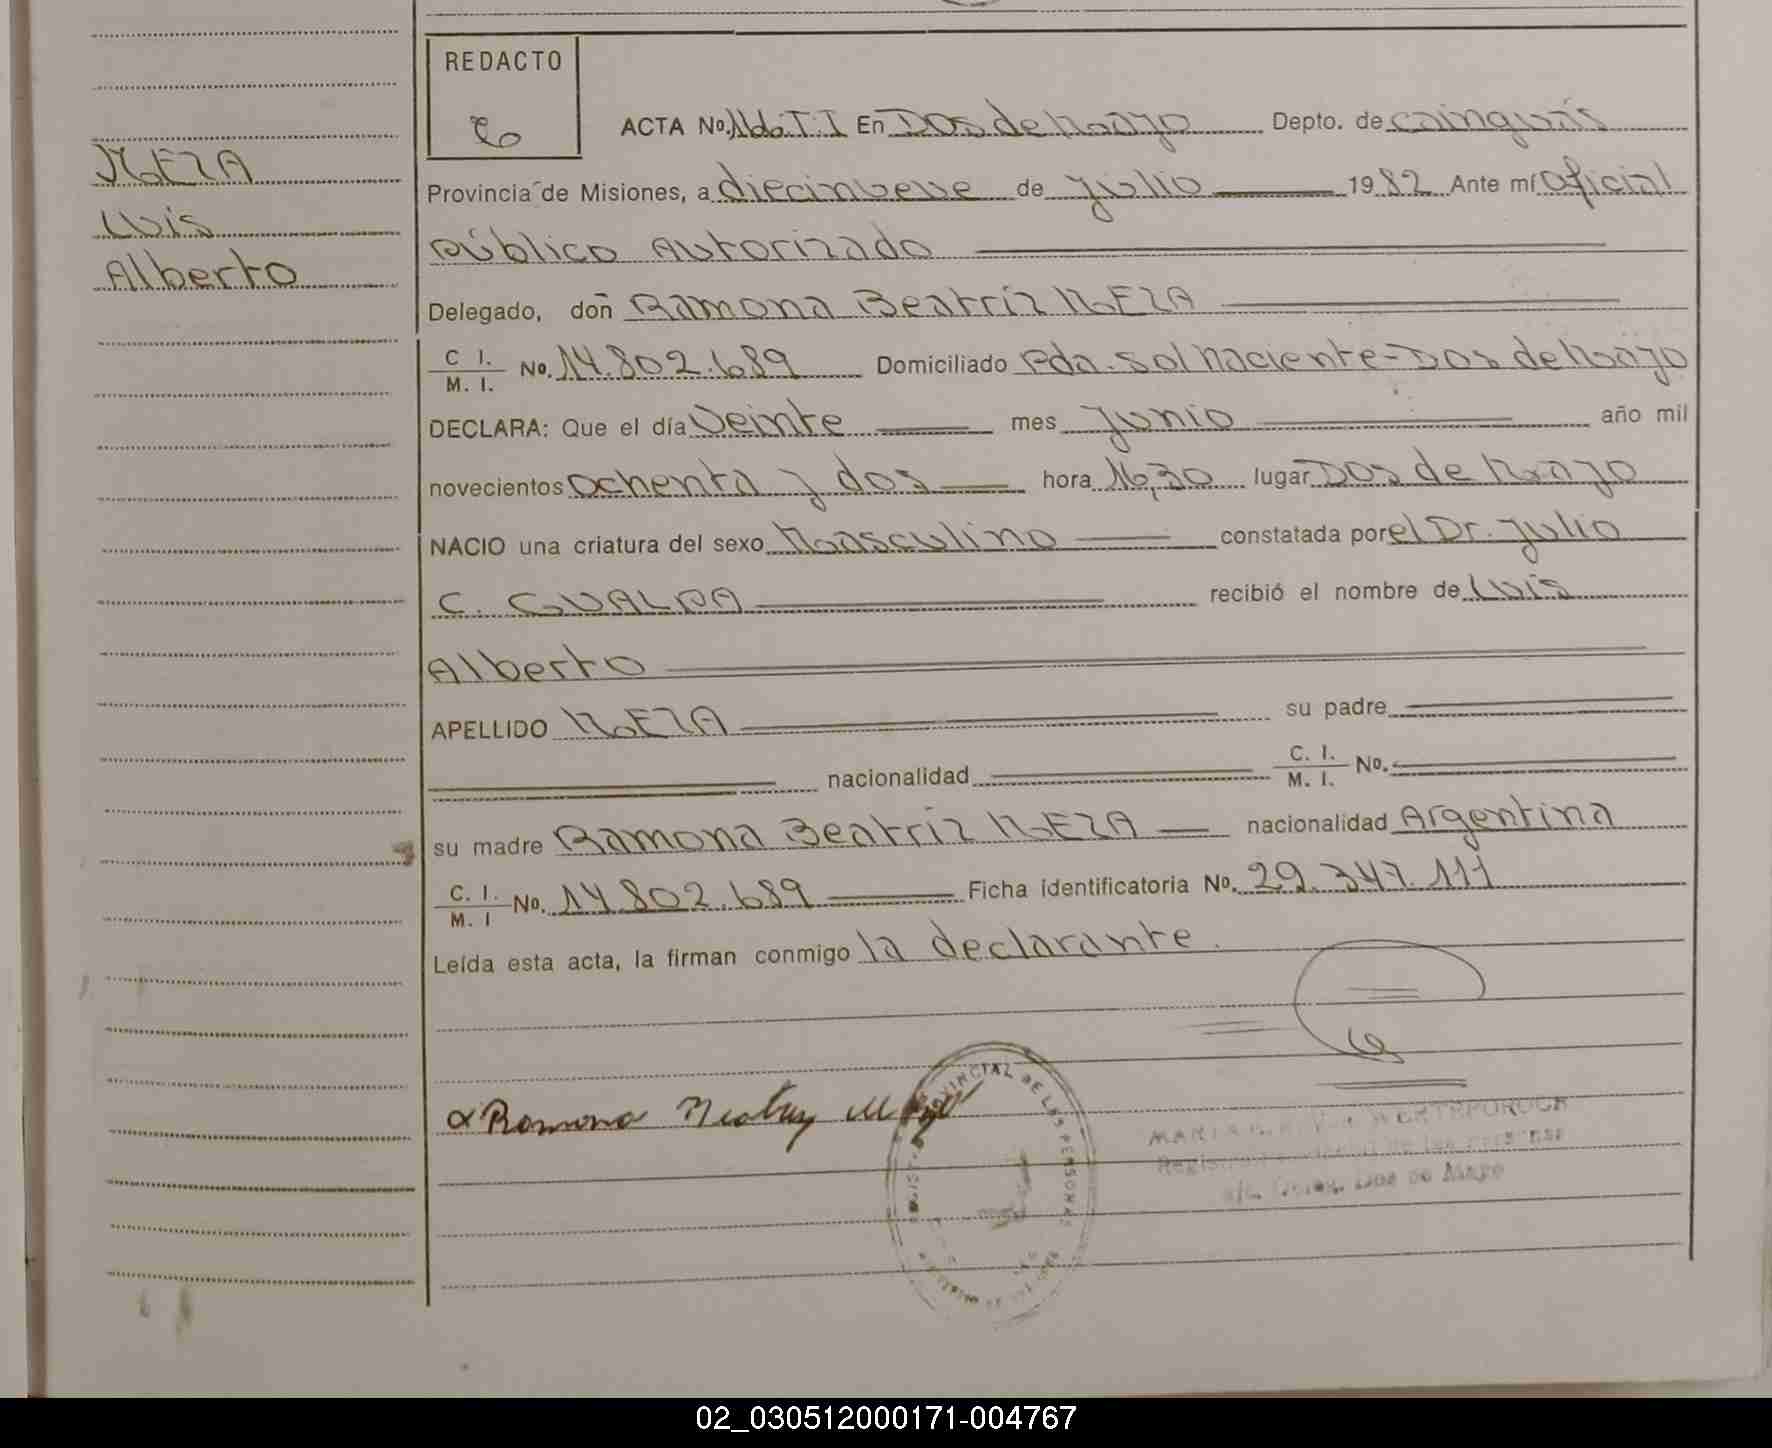 REDACTO
ACTA No. 16. T. I En Dos de Mayo Depto. de cainguás
MEZA
Provincia de Misiones, a diecinueve de Julio 1982 Ante mí Oficial
Luis
Público Autorizado
Alberto
Delegado, doñ Ramona Beatríz MEZA
C I. / M. I. No. 14.802.689 Domiciliado Pda. Sol Naciente - Dos de Mayo
DECLARA: Que el día Veinte mes Junio año mil
novecientos ochenta y dos hora 16,30 lugar Dos de Mayo
NACIO una criatura del sexo Masculino constatada por el Dr. Julio
C. GUALDA recibió el nombre de Luis
Alberto
APELLIDO MEZA su padre
nacionalidad C. I. / M. I. No.
su madre Ramona Beatriz MEZA nacionalidad Argentina
C. I. / M. I No. 14.802.689 Ficha identificatoria No. 29.347.111
Leída esta acta, la firman conmigo la declarante.
Ramona Beatriz Meza
PROVINCIAL DE LAS PERSONAS
MARIA
Dos de Mayo
02_030512000171-004767